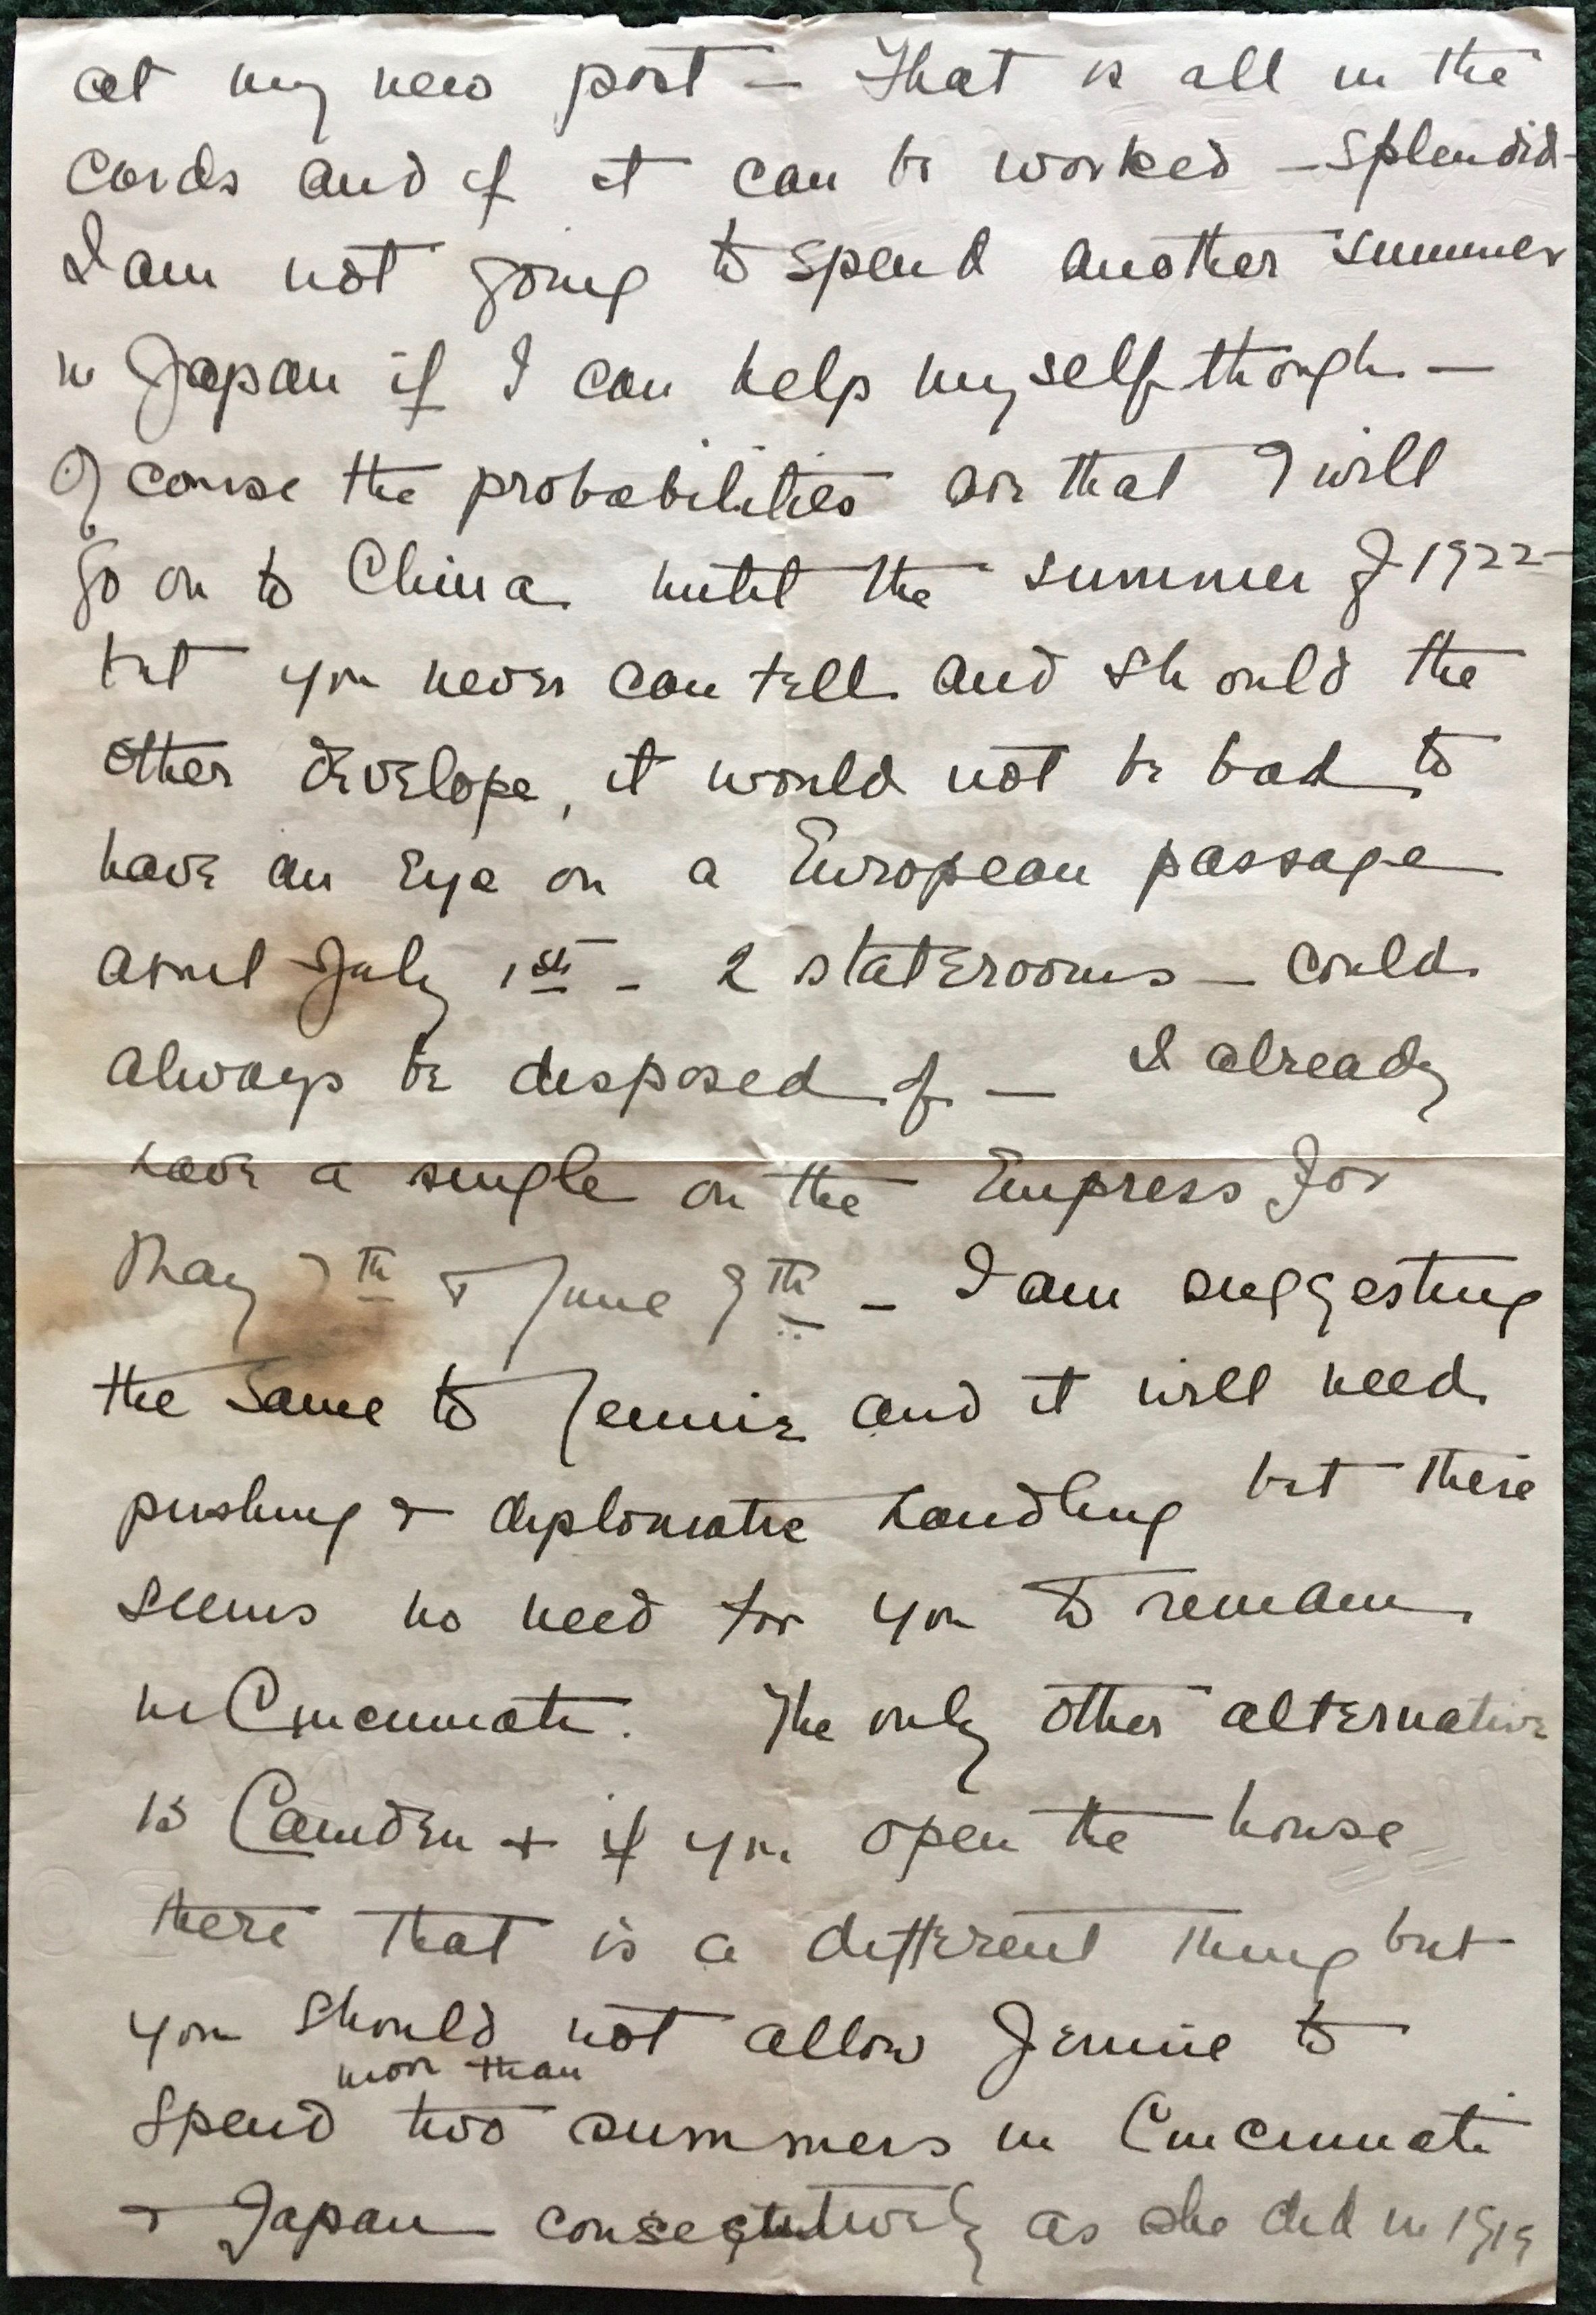 at my new post — That is all in the
cards and if it can be worked — splendid —
I am not going to spend another summer
in Japan if I can help myself though. —
Of course the probabilities are that I will
go on to China until the summer of 1922 —
but you never can tell and should the
other develope, it would not be bad to
have an eye on a European passage
about July 1st — 2 staterooms — could
always be disposed of — I already
have a single on the Empress for
May 7th & June 9th — I am suggesting
the same to Jennie and it will need
pushing & diplomatic handling but there
seems no need for you to remain
in Cincinnati. The only other alternative
is Camden & if you open the house
there that is a different thing but
you should not allow Jennie to
more than
spend two summers in Cincinnati
& Japan consecutively as she did in 1919